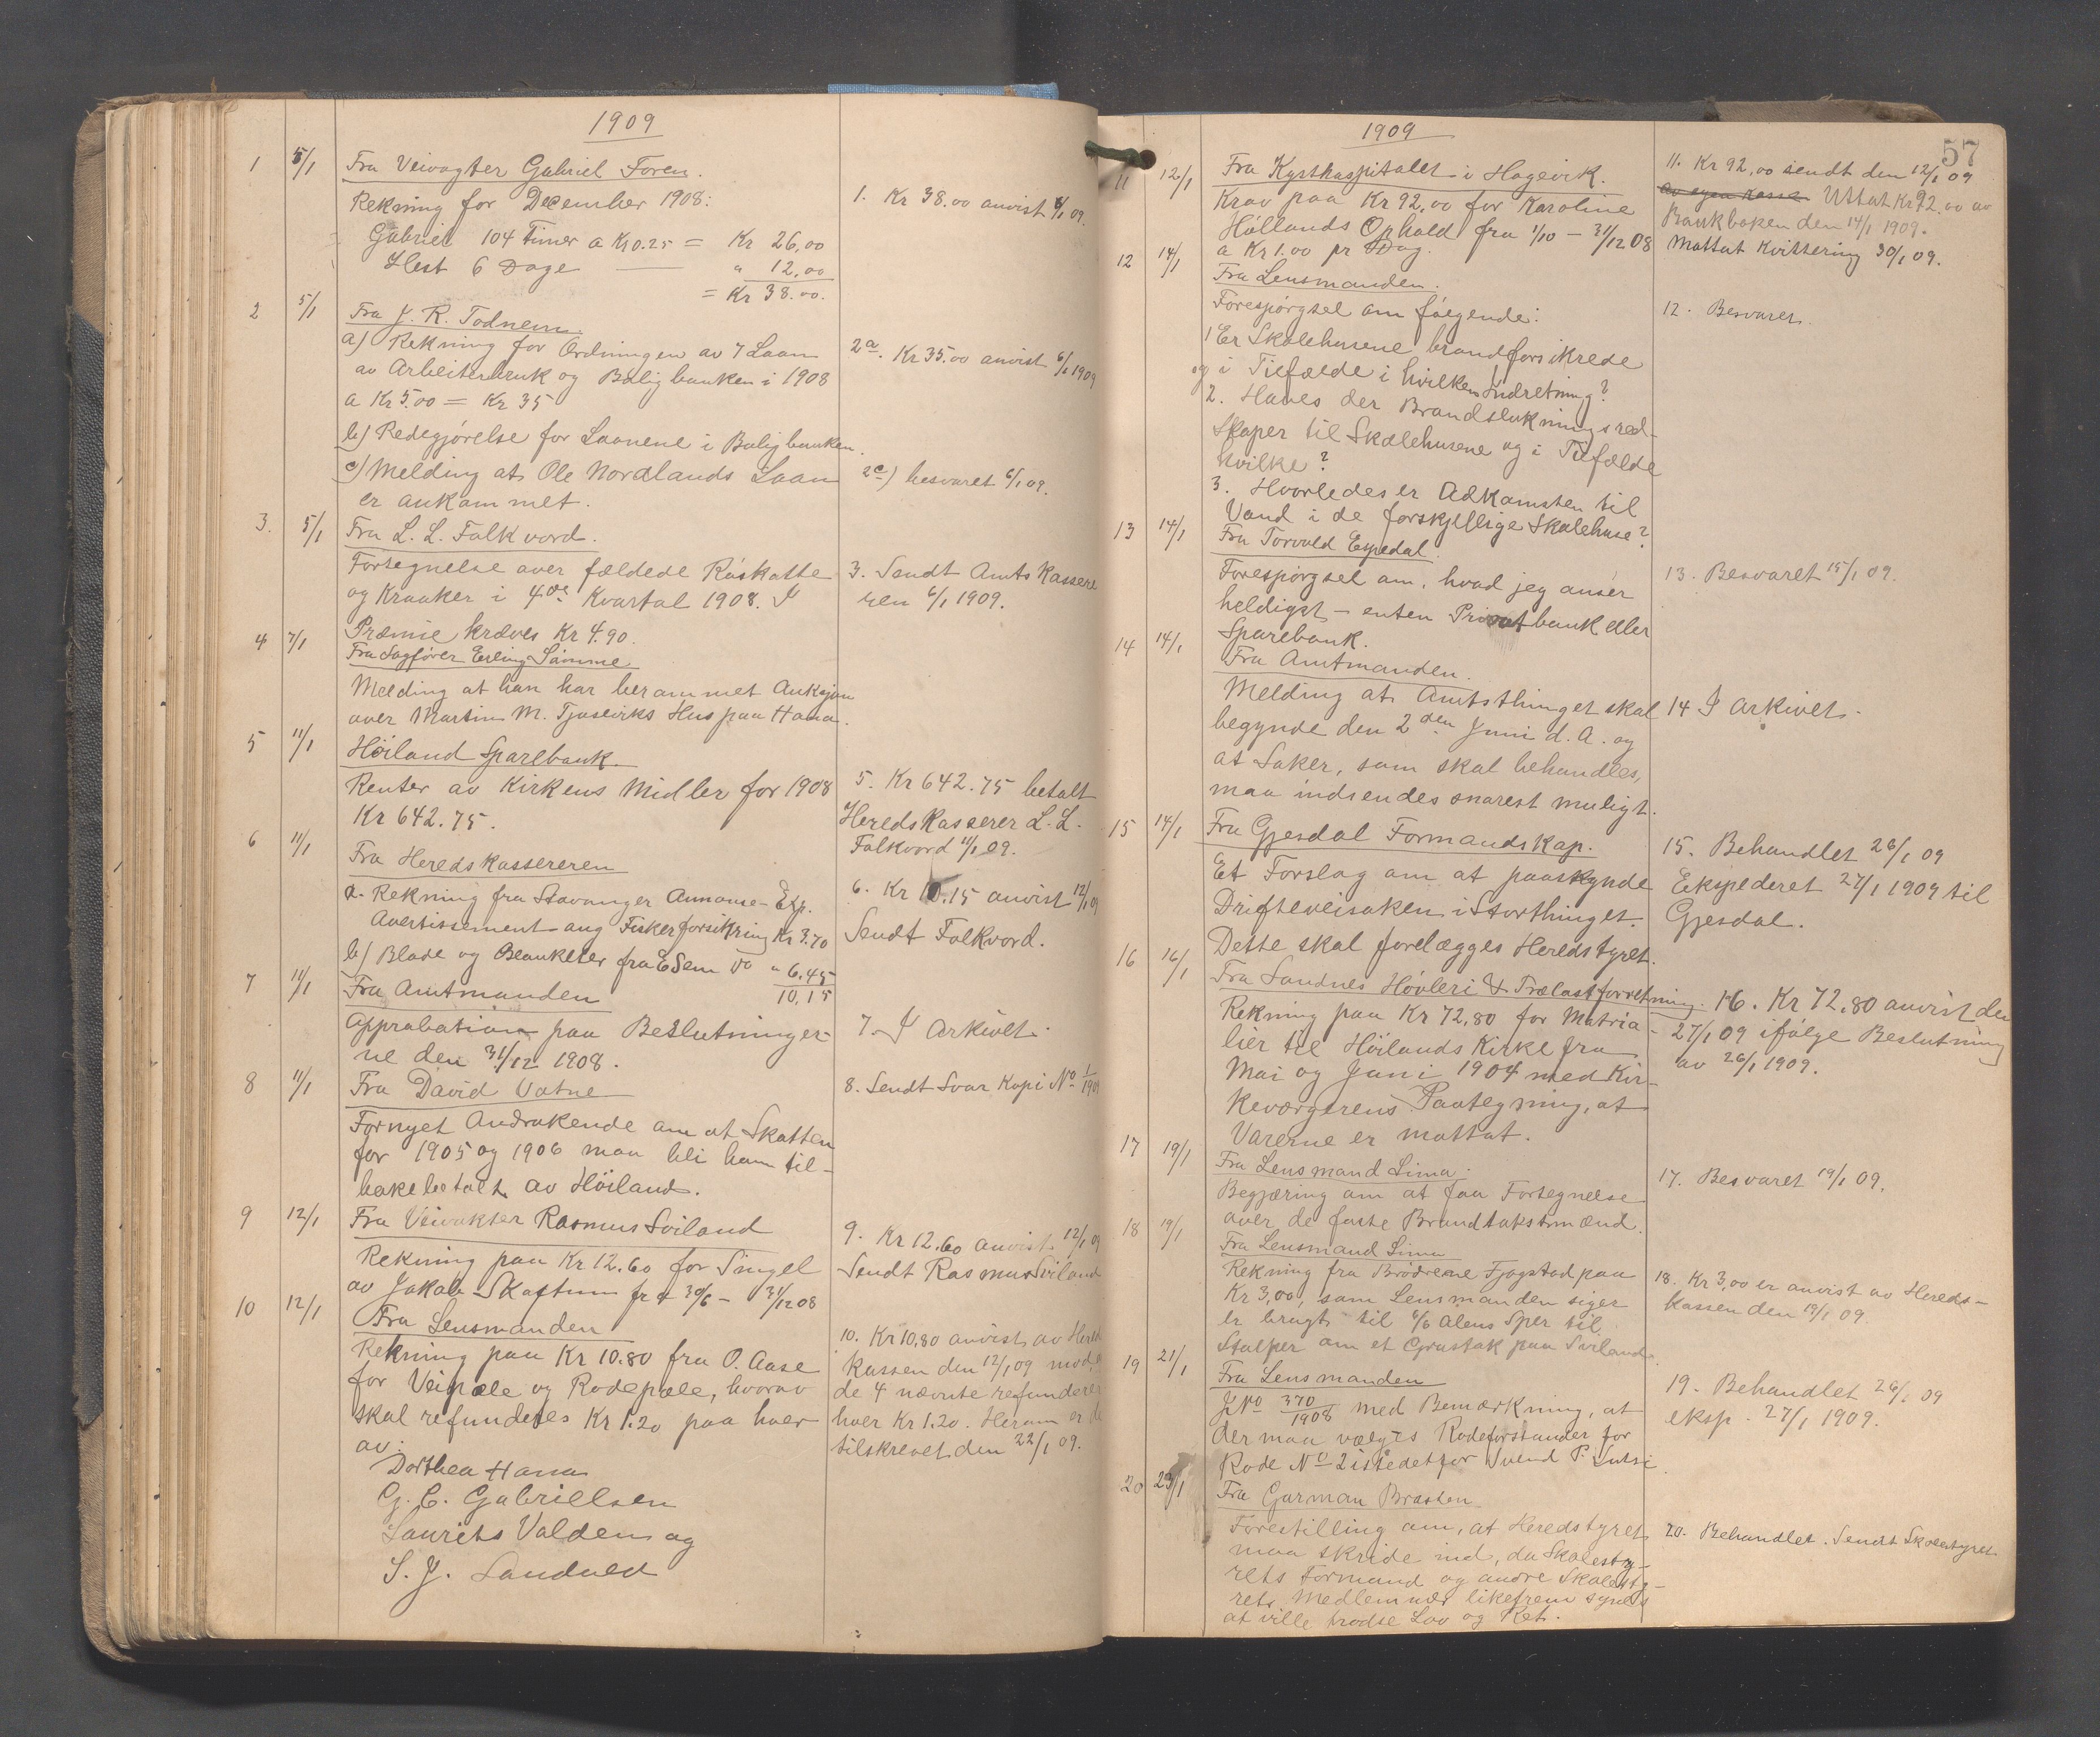 1909
1 5/1 Fra Veivagter Gabriel Foren.
Rekning for December 1908:
Gabriel 104 Timer a Kr 0.25 = Kr 26,00
Hest 6 Dage — " 12,00
= Kr 38.00.
1. Kr 38.00 anvist 6/1 09.
2 5/1 Fra J. R. Todnem
a) Rekning for Ordningen av 7 Laan
av Arbeiterbruk og Boligbanken i 1908
a Kr 5.00 = Kr 35
2a. Kr 35.00 anvist 6/1 1909
b) Redegjørelse for Laanene i Boligbanken.
c) Melding at Ole Nordlands Laan
er ankommet.
2c) besvaret 6/1 09.
3. 5/1 Fra L. L. Folkvord.
Fortegnelse over fældede Røiskatte
og Kraaker i 4de Kvartal 1908. I
Præmie kræves Kr 4.90.
3. Sendt Amts Kassere
ren 6/1 1909.
4 7/1 Fra Sagfører Erling Sømme
Melding at han har berammet Auksjon
over Martin M. Tjosevirks Hus paa Hana.
5 11/1 Høiland Sparebank.
Renter av Kirkens Midler for 1908
Kr 642.75.
5. Kr 642.75 betalt
Heredskasserer L. L.
Folkvord 11/1 09.
6 11/1 Fra Heredskassereren
a. Rekning fra Stavanger Annonse-Exp.
Avertissement ang Fiskerforsikring Kr 3.70
b) Blade og Blanketer fra E Sem do " 6.45
10,15
6. Kr 10.15 anvist 12/1 09
Sendt Folkvord.
7 11/1 Fra Amtmanden
Approbation paa Beslutninger-
ne den 31/12 1908.
7. I Arkivet.
8 11/1 Fra David Vatne
Fornyet Andrakende om at Skatten
for 1905 og 1906 maa bli ham til-
bakebetalt av Høiland.
8. Sendt Svar Kopi No 1/1909
9 12/1 Fra Veivakter Rasmus Sviland
Rekning paa Kr 12.60 for Singel
av Jakob Skaftun fra 30/6 - 31/12 08
9. Kr 12.60 anvist 12/1 09
Sendt Rasmus Sviland
10 12/1 Fra Lensmanden
Rekning paa Kr 10.80 fra O. Aase
for Veipæle og Rodepæle, hvorav
skal refunderes Kr 1.20 paa hver
av:
Dorthea Hana
G. C. Gabrielsen
Laurits Valdem og
S. J. Sandved
10. Kr 10,80 anvist av Hereds
kassen den 12/1 09 mod, a
de 4 nævnte refunderer
hver Kr 1.20. Herom er d
tilskrevet den 22/1 09.
57
1909
11 12/1 Fra Kysthospitalet i Hagevik.
Krav paa Kr 92,00 for Karoline
Høllands Ophold fra 1/10 - 31/12 08
a Kr 1.00 pr Dag.
11. Kr 92,00 sendt den 12/1 09
av egen Kasse Uttat Kr 92.00 av
Bankboken den 14/1 1909.
Mottat Kvittering 30/1 09.
12 14/1 Fra Lensmanden.
Forespørgsel om følgende:
1 Er Skolehusene brandforsikrede
og i Tilfælde i hvilken Indretning?
2. Haves der Brandslukningsred-
skaper til Skolehusene og i Tilfælde
hvilke?
3. Hvorledes er Adkomsten til
Vand i de forskjellige Skolehuse?
12. Besvaret.
13 14/1 Fra Torvald Espedal.
Forespørgsel om, hvad jeg anser
heldigst - enten Privatbank eller
Sparebank.
13. Besvaret 15/1 09.
14 14/1 Fra Amtmanden.
Melding at Amtsthinget skal
begynde den 2den Juni d. A. og
at Saker, som skal behandles,
maa indsendes snarest muligt.
14 I Arkivet.
15 14/1 Fra Gjesdal Formandskap.
Et Forslag om at paaskynde
Drifteveisaken i Storthinget.
Dette skal forelægges Heredstyret.
15. Behandlet 26/1 09
Ekspederet 27/1 1909 til
Gjesdal.
16 16/1 Fra Sandnes Høvleri & Trælastforretning.
Rekning paa Kr 72,80 for Matria-
lier til Høilands Kirke fra
Mai og Juni 1904 med Kir-
keværgerens Paategning, at
Varerne er mottat.
16. Kr 72,80 anvist den
27/1 09 ifølge Beslutning
av 26/1 1909.
17 19/1 Fra Lensmand Lima.
Begjæring om at faa Fortegnelse
over de faste Brandtakstmænd.
17. Besvaret 19/1 09.
18 19/1 Fra Lensmand Lima
Rekning fra Brødrene Fjogstad paa
Kr 3,00, som Lensmanden siger
er brugt til 6/6 Alens Sper til
Stolper om et Grustak paa Sviland.
18. Kr 3,00 er anvist av Hereds-
kassen den 19/1 09.
19 21/1 Fra Lensmanden
JNo 370/1908 med Bemærkning, at
der maa vælges Rodeforstander for
Rode No 2 istedetfor Svend P.
19. Behandlet 26/1 09
eksp. 27/1 1909.
20 23/1 Fra Garman Brasten
Forestilling om, at Heredstyret
maa skride ind, da Skolesty-
rets Formand og andre Skolesty-
rets Medlemmer likefrem synes
at ville trodse Lov og Ret.
20. Behandlet. Sendt Skolestyret